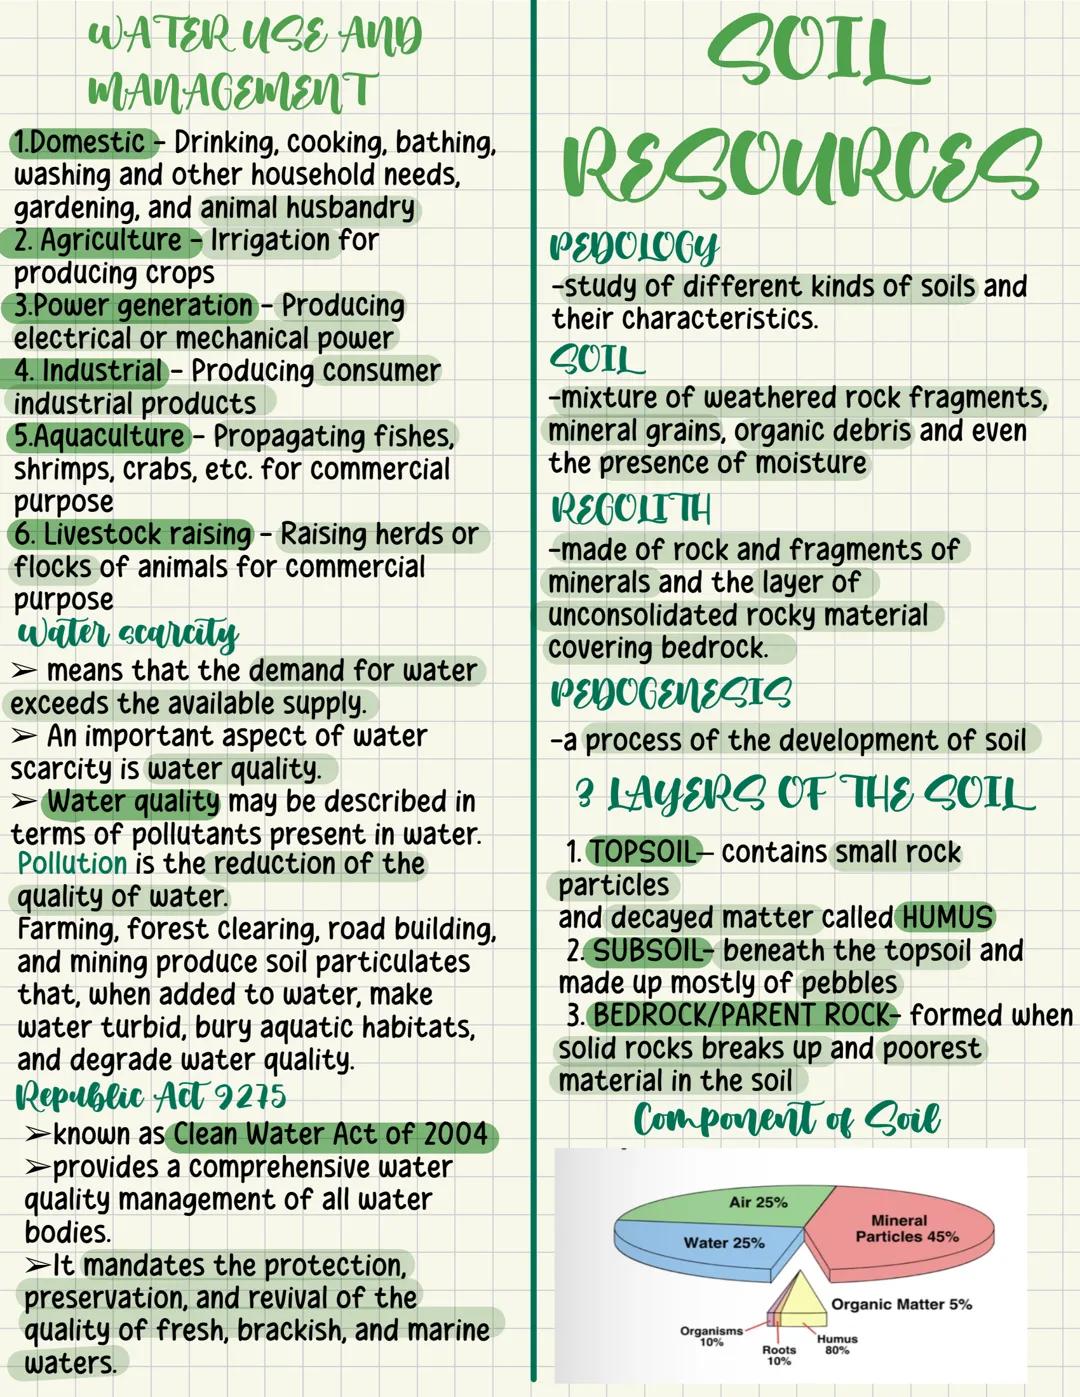 WATER USE AND
MANAGEMENT
1.Domestic - Drinking, cooking, bathing,
washing and other household needs,
gardening, and animal husbandry
2. Agriculture - Irrigation for
producing crops
3.Power generation - Producing
electrical or mechanical power
4. Industrial - Producing consumer
industrial products
5.Aquaculture - Propagating fishes,
shrimps, crabs, etc. for commercial
purpose
6. Livestock raising - Raising herds or
flocks of animals for commercial
purpose
Water scarcity
➢ means that the demand for water
exceeds the available supply.
➢ An important aspect of water
scarcity is water quality.
➢ Water quality may be described in
terms of pollutants present in water.
Pollution is the reduction of the
quality of water.
Farming, forest clearing, road building,
and mining produce soil particulates
that, when added to water, make
water turbid, bury aquatic habitats,
and degrade water quality.
Republic Act 9275
➢known as Clean Water Act of 2004
➢provides a comprehensive water
quality management of all water
bodies.
➢It mandates the protection,
preservation, and revival of the
quality of fresh, brackish, and marine
waters.
SOIL
RESOURCES
PEDOLOGY
-study of different kinds of soils and
their characteristics.
SOIL
-mixture of weathered rock fragments,
mineral grains, organic debris and even
the presence of moisture
REGOLITH
-made of rock and fragments of
minerals and the layer of
unconsolidated rocky material
covering bedrock.
PEDOGENESIS
-a process of the development of soil
3 LAYERS OF THE SOIL
1. TOPSOIL– contains small rock
particles
and decayed matter called HUMUS
2. SUBSOIL- beneath the topsoil and
made up mostly of pebbles
3. BEDROCK/PARENT ROCK- formed when
solid rocks breaks up and poorest
material in the soil
Component of Soil
Air 25%
Water 25%
Mineral
Particles 45%
Organic Matter 5%
Organisms
10%
Roots
10%
Humus
80%